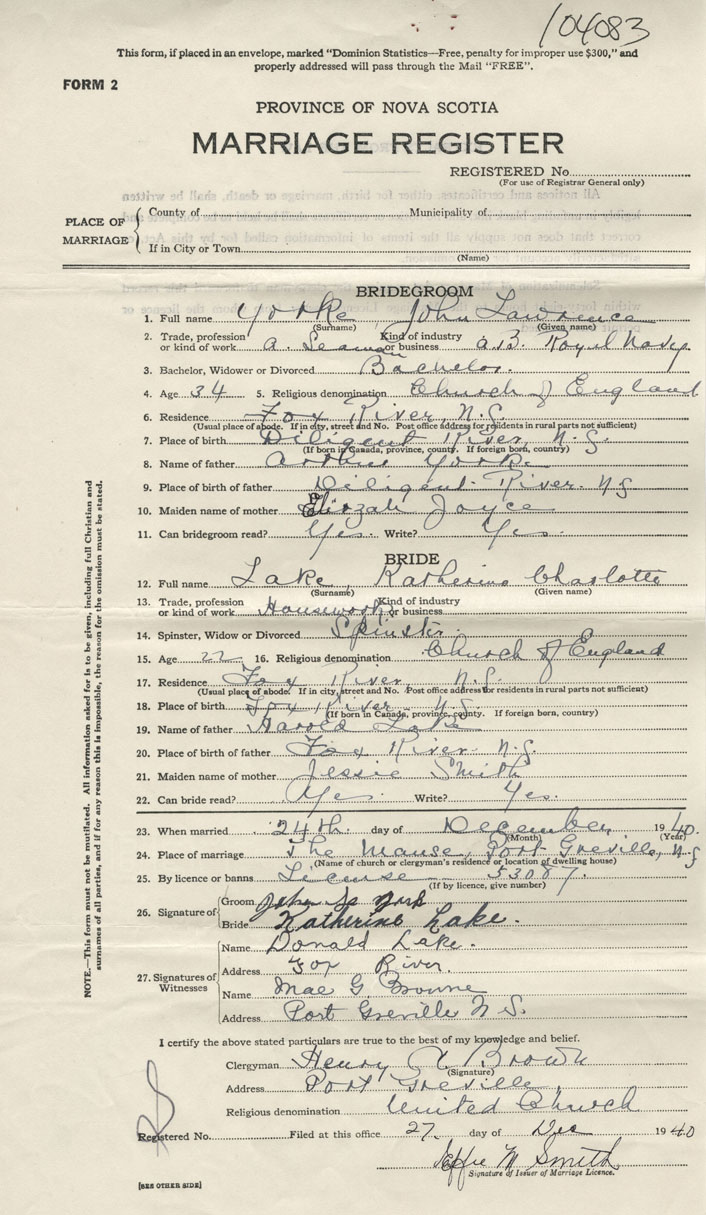 104083
This form, if placed in an envelope, marked "Dominion Statistics—Free, penalty for improper use $300," and
properly addressed will pass through the Mail "FREE".
FORM 2
PROVINCE OF NOVA SCOTIA
MARRIAGE REGISTER
REGISTERED No.
(For use of Registrar General only)
PLACE OF MARRIAGE
County of Municipality of
If in City or Town
(Name)
BRIDEGROOM
1. Full name Yorke John Lawrence
(Surname) (Given name)
2. Trade, profession or kind of work a. Seaman Kind of industry or business a.B. Royal Navy
3. Bachelor, Widower or Divorced Bachelor.
4. Age 34 5. Religious denomination Church of England
6. Residence Fox River, N.S.
(Usual place of abode. If in city, street and No. Post office address for residents in rural parts not sufficient)
7. Place of birth Diligent River, N.S.
(If born in Canada, province, county. If foreign born, country)
8. Name of father Arthur Yorke
9. Place of birth of father Diligent River. N.S
10. Maiden name of mother Joyce
11. Can bridegroom read? Yes. Write? Yes.
BRIDE
12. Full name Lake, Katherine Charlotte
(Surname) (Given name)
13. Trade, profession or kind of work Housework Kind of industry or business
14. Spinster, Widow or Divorced Spinster.
15. Age 22 16. Religious denomination Church of England
17. Residence Fox River N.S.
(Usual place of abode. If in city, street and No. Post office address for residents in rural parts not sufficient)
18. Place of birth Fox River N.S.
(If born in Canada, province, county. If foreign born, country)
19. Name of father Harold Lake
20. Place of birth of father Fox River N.S.
21. Maiden name of mother Jessie Smith
22. Can bride read? Yes. Write? Yes.
23. When married 24th. day of December, 1940.
(Month) (Year)
24. Place of marriage The Manse, Port Greville, N.S
(Name of church or clergyman's residence or location of dwelling house)
25. By licence or banns License 53087.
(If by licence, give number)
26. Signature of
Groom John York
Bride Katherine Lake.
27. Signatures of Witnesses
Name Donald Lake.
Address Fox River.
Name Mae G Browne
Address Port Greville N.S.
I certify the above stated particulars are true to the best of my knowledge and belief.
Clergyman Henry A Brown
(Signature)
Address Port Greville,
Religious denomination United Church
Registered No. Filed at this office 27 day of Dec 1940
Effie M Smith
Signature of Issuer of Marriage Licence.
[SEE OTHER SIDE]
NOTE.—This form must not be mutilated. All information asked for is to be given, including full Christian and
surnames of all parties, and if for any reason this is impossible, the reason for the omission must be stated.